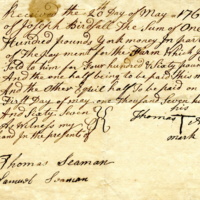 Received the 26 Day of May 176
of Joseph Birdsall The Sum of One
Hundred pound York money In part
the Day ment for the Farm Which
told to him for four hundred & Sixty pound
And the one half being to be paid this
And the Other Equil half To be paid on
First Day of may one Thousand Seven hu
And Sixty Seven
his
As Witness my Thomas T
and In the presents of mark
Thomas Seaman
Samuel Seaman